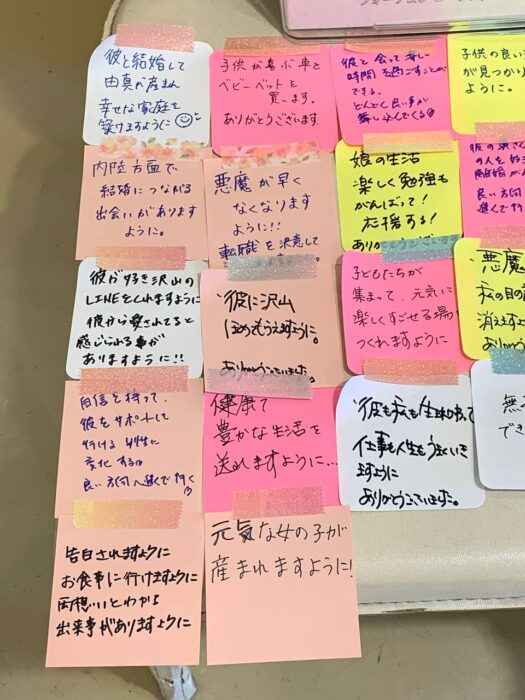 彼と結婚して
由真が産まれ
幸せな家庭を
築けますように
子供が喜ぶ車と
ベビーベットを
買います。
ありがとうございます
彼と会って楽しい
時間を過ごすことが
できる。
どんどん良い事が
舞い込んでくる
子供の良い
が見つかり
ように。
内陸方面で
結婚につながる
出会いがあります
ように。
悪魔が早く
なくなります
ように!!
転職を決意して
娘の生活
楽しく勉強も
がんばって!
応援する!
ありがとうございます
彼の奥さん
離婚が
良い方向
進んで
彼が好き沢山の
LINEをくれますように
彼から愛されてると
感じられる事が
ありますように!!
彼に沢山
ほめてもらえますように。
ありがとうございました。
子どもたちが
集まって、元気に
楽しくすごせる場が
つくれますように
悪魔
私の目の
消えますよ
ありがとう
自信を持って、
彼をサポートして
行ける女性に
変化する
良い方向へ進んで行く
健康で
豊かな生活を
送れますように…
彼も私も生まれ持って
仕事も人生もうまくいき
ますように
ありがとうございました。
無
でき
告白されますように
お食事に行けますように
両想いとわかる
出来事がありますように
元気な女の子が
産まれますように!